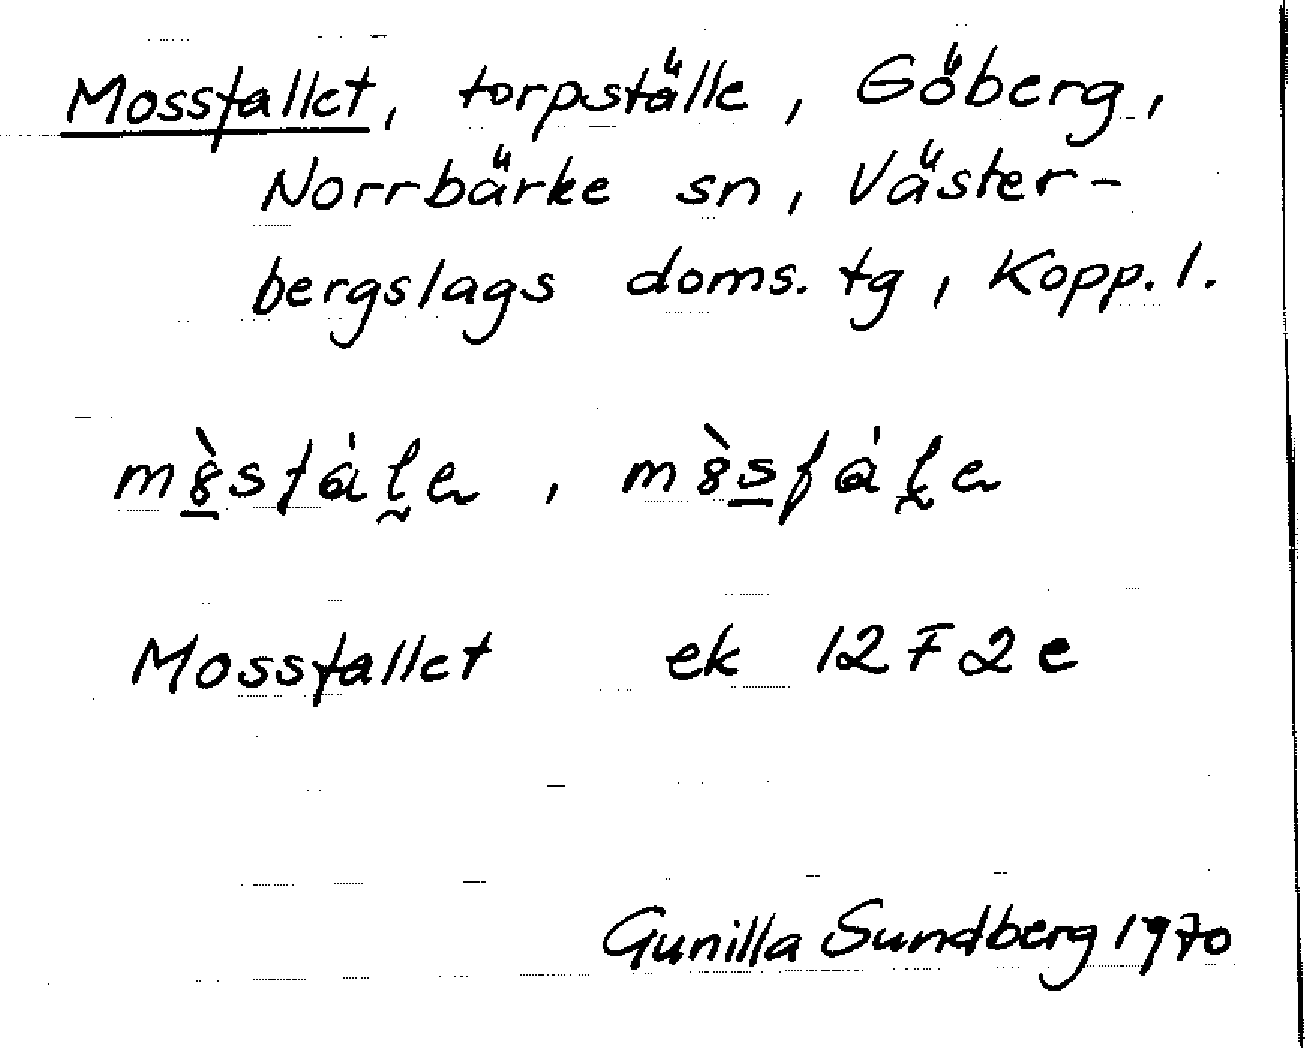 Mossfallet, torpställe, Göberg,
Norrbärke sn, Väster-
bergslags doms. tg, Kopp. l.
Mossfallet ek 12F2e
Gunilla Sundberg 1970